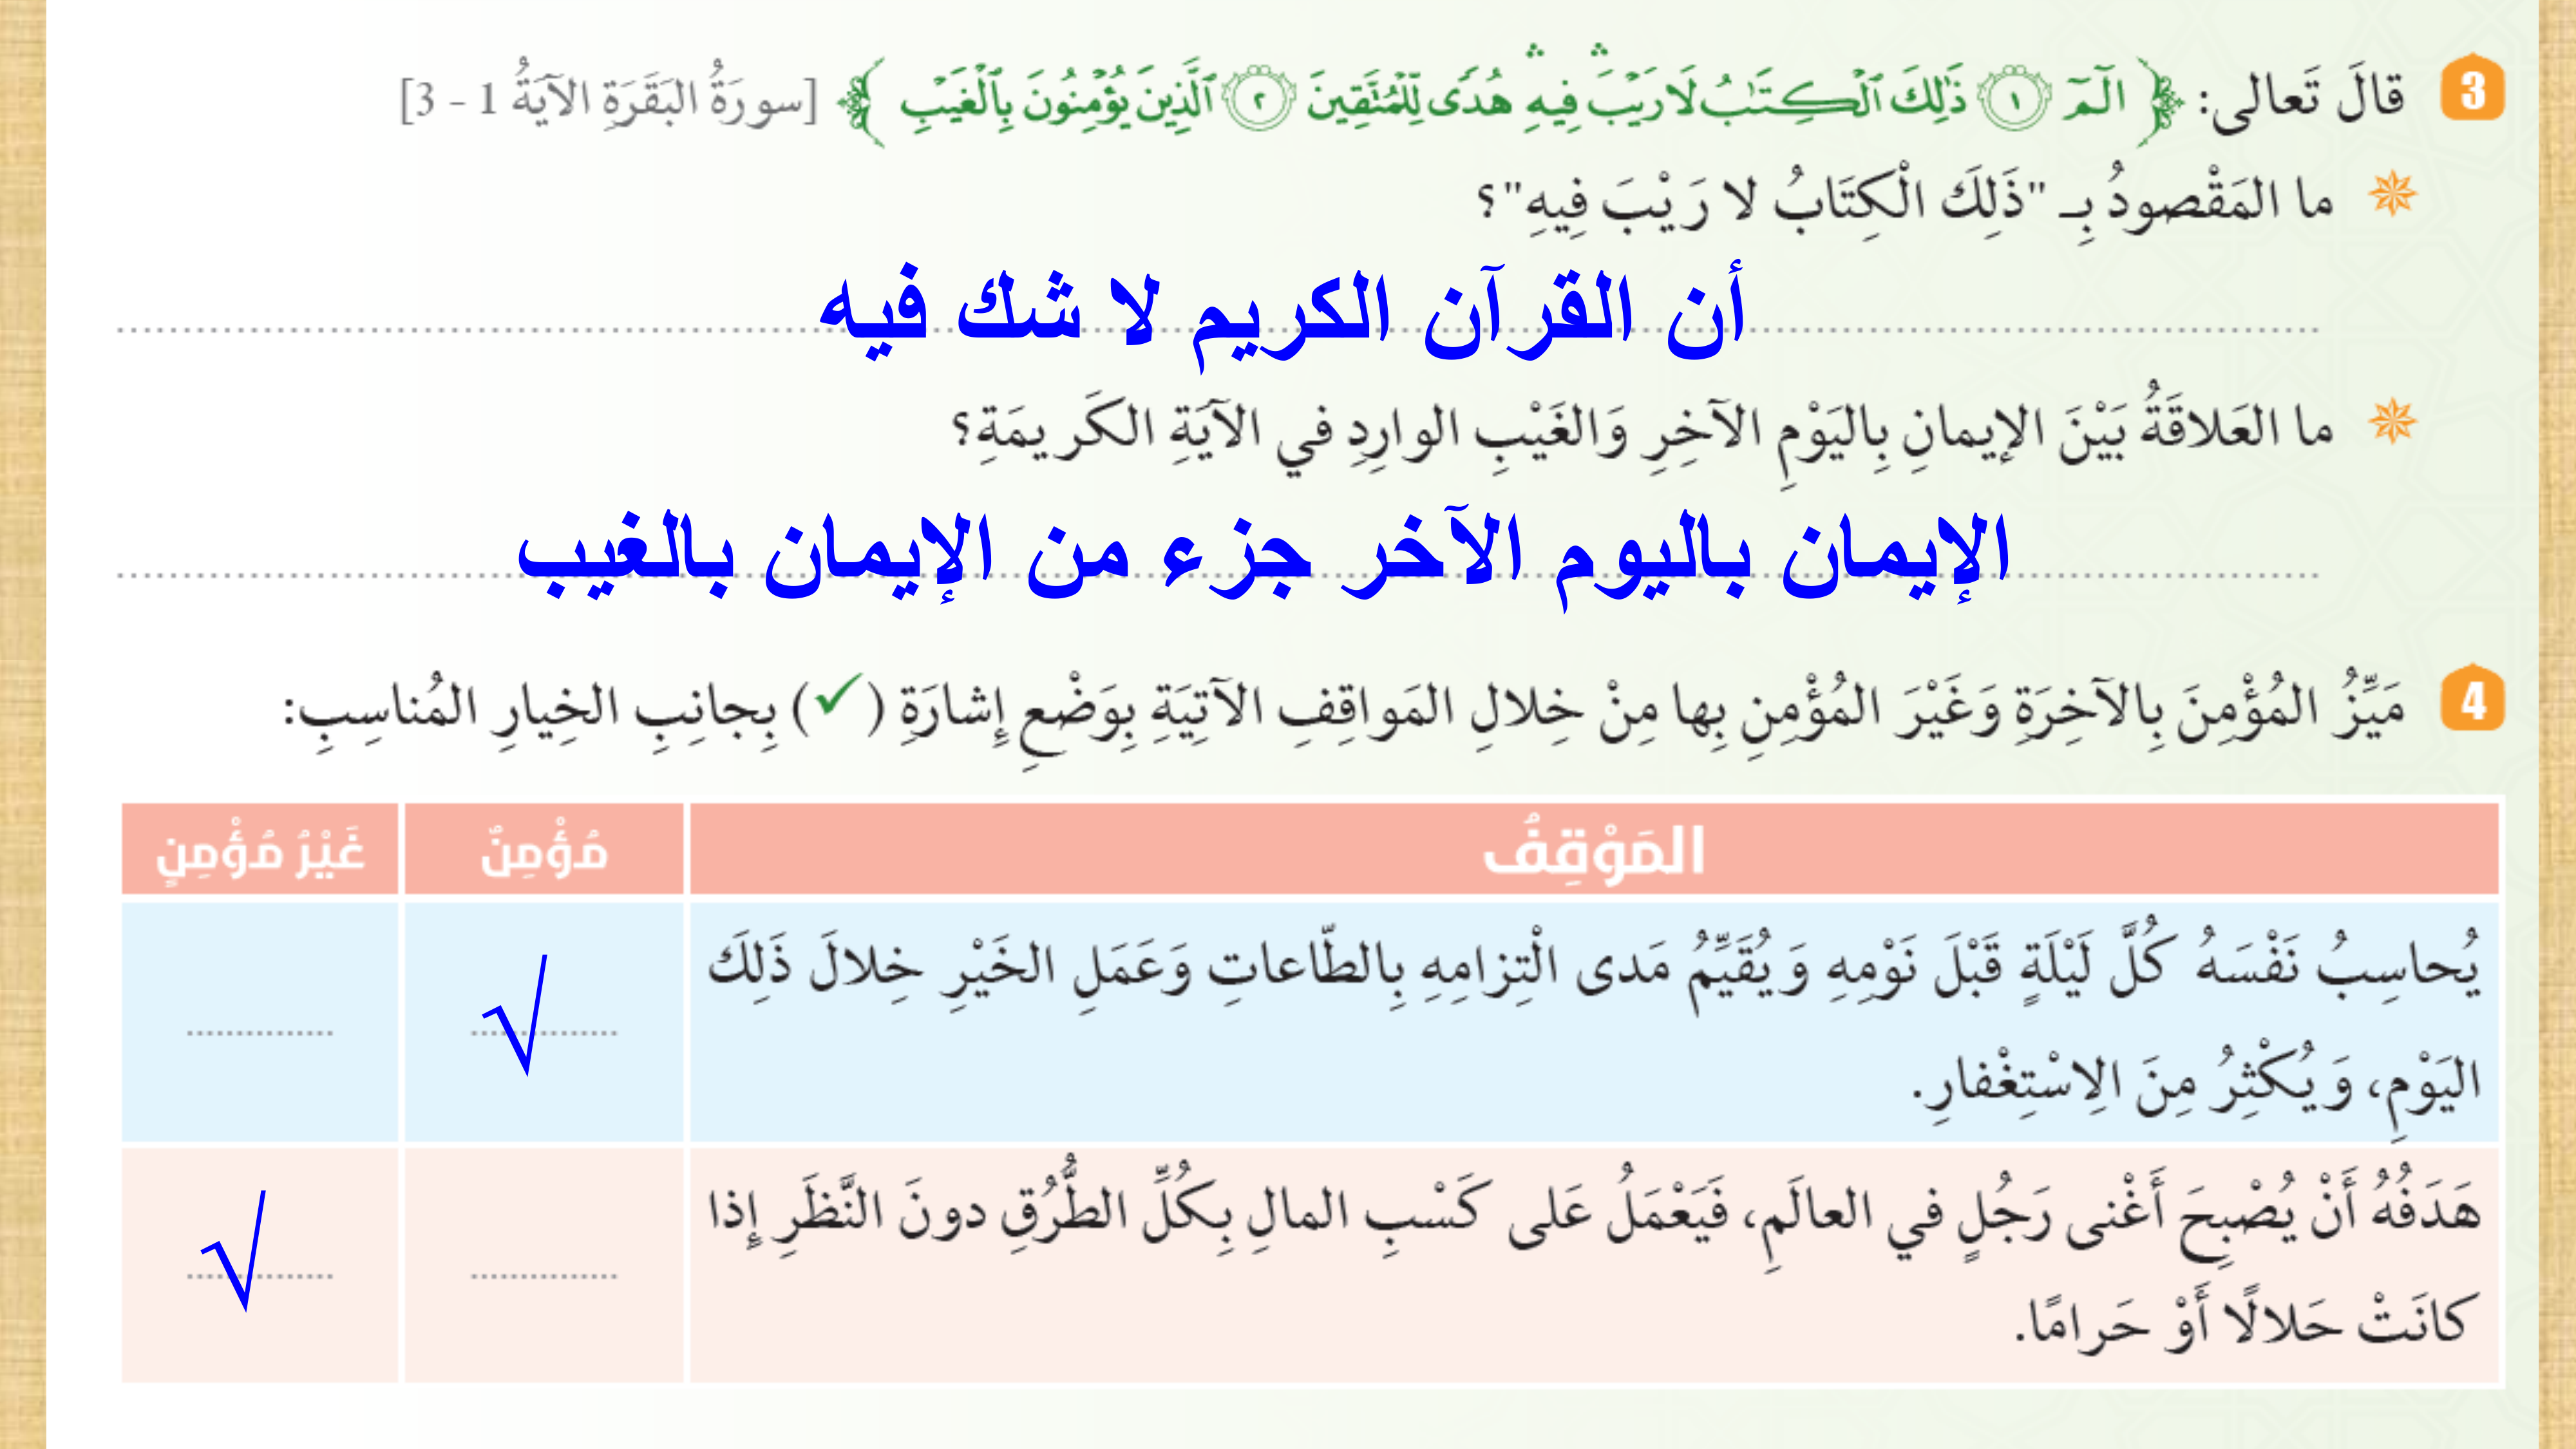 3 قالَ تَعالى: ﴿ الٓمٓ ١ ذَٰلِكَ ٱلْكِتَٰبُ لَا رَيْبَۛ فِيهِۛ هُدًى لِّلْمُتَّقِينَ ٢ ٱلَّذِينَ يُؤْمِنُونَ بِٱلْغَيْبِ ﴾ [سورَةُ البَقَرَةِ الآيَةُ 1 - 3]
ما المَقْصودُ بِـ "ذَلِكَ الْكِتَابُ لا رَيْبَ فِيهِ"؟
أن القرآن الكريم لا شك فيه
ما العَلاقَةُ بَيْنَ الإيمانِ بِاليَوْمِ الآخِرِ وَالغَيْبِ الوارِدِ في الآيَةِ الكَريمَةِ؟
الإيمان باليوم الآخر جزء من الإيمان بالغيب
4 مَيِّزُ المُؤْمِنَ بِالآخِرَةِ وَغَيْرَ المُؤْمِنِ بِها مِنْ خِلالِ المَواقِفِ الآتِيَةِ بِوَضْعِ إِشارَةِ (✓) بِجانِبِ الخِيارِ المُناسِبِ:
المَوْقِفُ مُؤْمِنٌ غَيْرُ مُؤْمِنٍ
يُحاسِبُ نَفْسَهُ كُلَّ لَيْلَةٍ قَبْلَ نَوْمِهِ وَيُقَيِّمُ مَدى الْتِزامِهِ بِالطّاعاتِ وَعَمَلِ الخَيْرِ خِلالَ ذَلِكَ
√
اليَوْمِ، وَيُكْثِرُ مِنَ الِاسْتِغْفارِ.
هَدَفُهُ أَنْ يُصْبِحَ أَغْنى رَجُلٍ في العالَمِ، فَيَعْمَلُ عَلى كَسْبِ المالِ بِكُلِّ الطُّرُقِ دونَ النَّظَرِ إِذا
√
كانَتْ حَلالًا أَوْ حَرامًا.